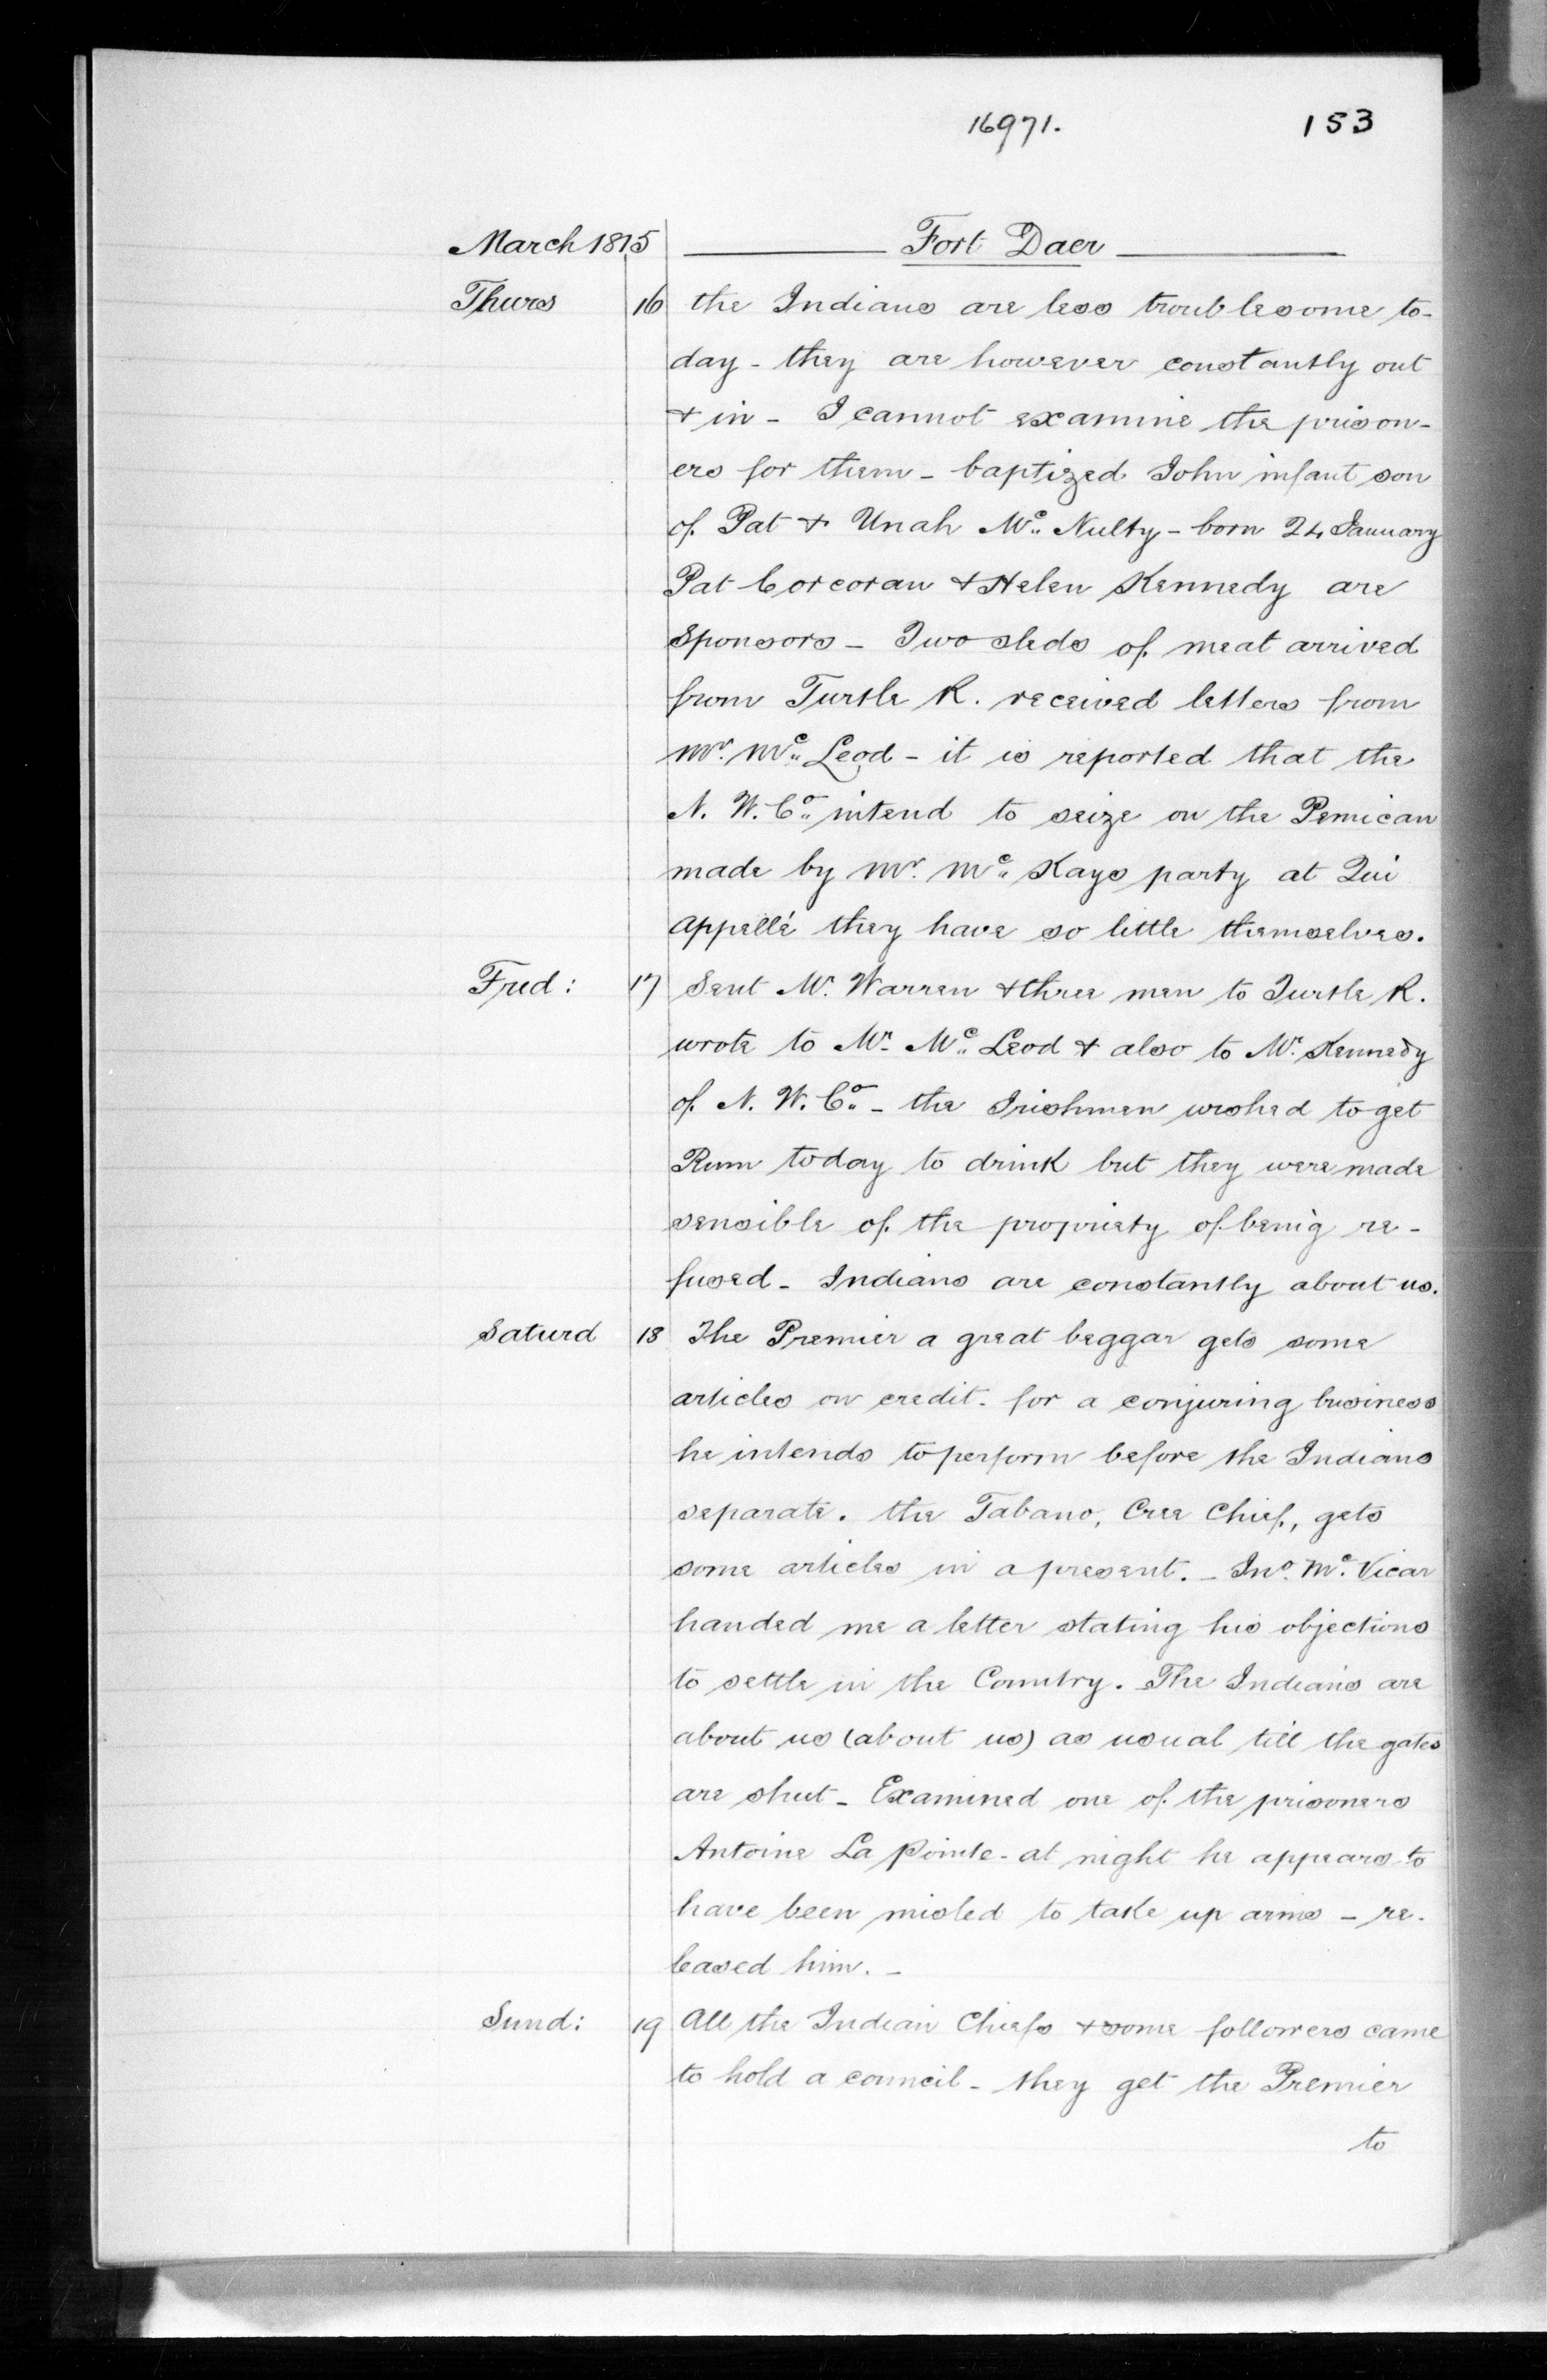 16971. 153
March 1815 Fort Daer
Thurs 16 the Indians are less troublesome to-
day - they are however constantly out
& in - I cannot examine the prison-
ers for them - baptized John infant son
of Pat & Unah Mc. Nulty - born 24 January
Pat Corcoran & Helen Kennedy are
Sponsors - Two sleds of meat arrived
from Turtle R. received letters from
Mr. Mc. Leod - it is reported that the
N. W. Co. intend to seize on the Pemican
made by Mr. Mc. Kays party at Qui
appellé they have so little themselves.
Frid: 17 Sent Mr. Warren & three men to Turtle R.
wrote to Mr. Mc. Leod & also to Mr. Kennedy
of N. W. Co. - the Irishmen wished to get
Rum today to drink but they were made
sensible of the propriety of being re-
fused - Indians are constantly about us.
Saturd 18 The Premier a great beggar gets some
articles on credit. for a conjuring business
he intends to perform before the Indians
separate. the Tabano, Cree Chief, gets
some articles in a present. - Jno. Mc. Vicar
handed me a letter stating his objections
to settle in the Country. The Indians are
about us (about us) as usual till the gates
are shut - Examined one of the prisoners
Antoine La Pointe - at night he appears to
have been misled to take up arms - re-
leased him. -
Sund: 19 All the Indian Chiefs & some followers came
to hold a council - they get the Premier
to